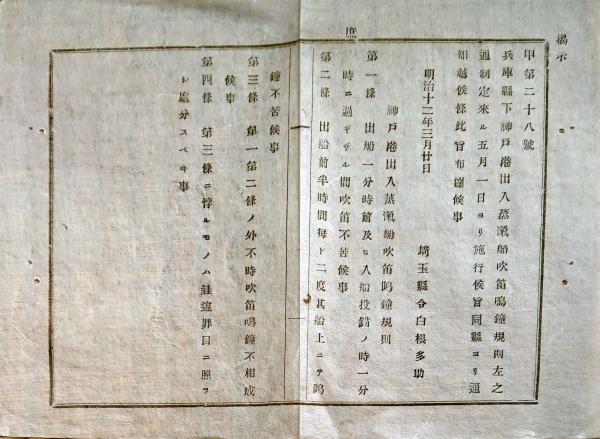 掲示
庶
甲第二十八號
兵庫縣下神戸港出入蒸滊船吹笛鳴鐘規則左之
通制定來ル五月一日ヨリ施行候旨同縣ヨリ通
知越候條此旨布達候事
明治十二年三月廿日
埼玉縣令白根多助
神戸港出入蒸滊船吹笛鳴鐘規則
第一條 出船一分時前及ヒ入船投錨ノ時一分
時ニ過ギザル間吹笛不苦候事
第二條 出船前半時間每ト二度其船上ニテ鳴
鐘不苦候事
第三條 第一第二條ノ外不時吹笛鳴鐘不相成
候事
第四條 第三條ニ悖ルモノハ註違罪目ニ照ラ
シ處分スベキ事